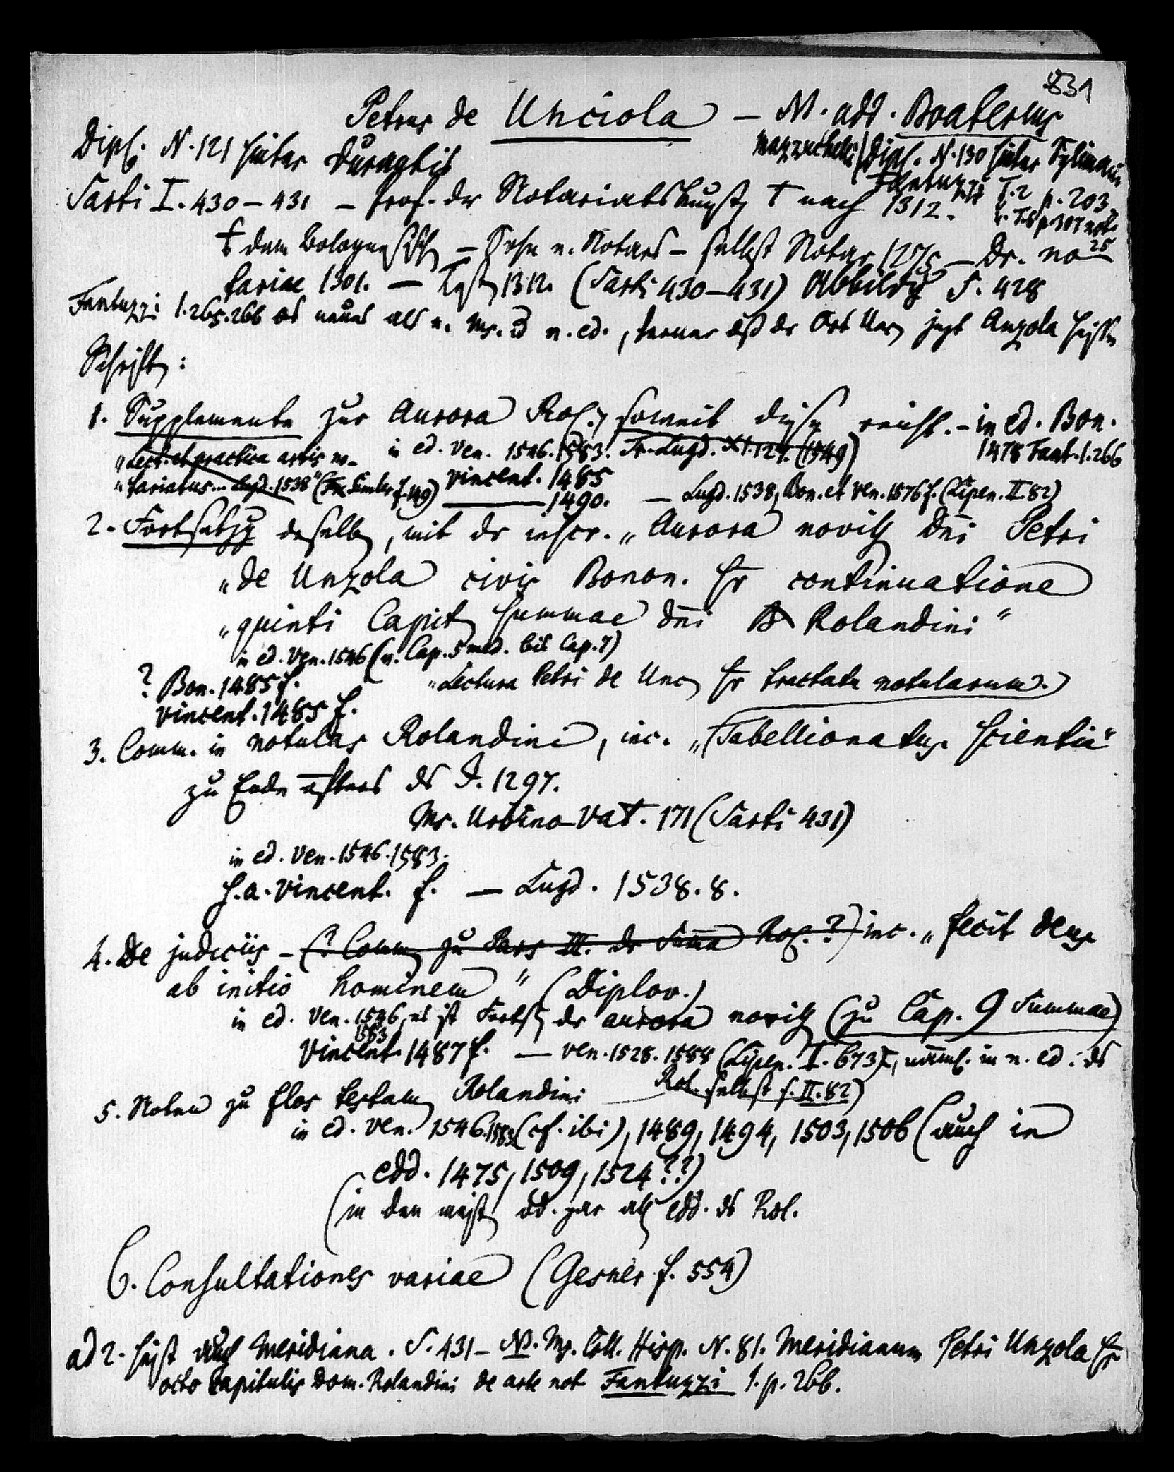 831
Petrus de Unciola – N. add. Boaterius
Dipl. N. 121 hinter Durantis Mazzuchelli Dipl. N. 130 hinter
Fantuzzi T. 2 p. 203
Sarti I. 430–431 – Prof. der Notariatskunst † nach 1312.
– Sohn e. Notars – selbst Notar 1275 – Dr. no
tariae 1301. – Test 1312. (Sarti 430–431) Abbildg S. 428
Fantuzzi 1. 265. 266 neues als e. Ms. u. ed., ferner daß der Ort Unz jetzt Anzola heißt
Schriften:
1. Supplemente zur Aurora Rol., soweit diese reicht. – in ed. Bon.
in ed. Ven. 1546. 1583. Lugd. (1549) 1478 Fant. 1. 266
„Lect. et practica artis no-
„tariatus... Lugd. 1538“ Vincent. 1485
1490. – Lugd. 1538, Bon. et Ven. 1576 f. (Lipen. II. 82)
2. Fortsetzg derselben, mit der inscr. „Aurora noviss. dni Petri
„de Unzola civis Bonon. sr continuatione
„quinti Capit. summae dni Rolandini“
in ed. Ven. 1546 (v. Cap. 5 med. bis Cap. 7)
? Bon. 1485 f. „Lectura Petri de Unc. sr tractatu notularum.)
Vincent. 1485 f.
3. Comm. in notulas Rolandini, inc. „Tabellionatus scientia“
zu Ende öfters das J. 1297.
Ms. Urbino-Vat. 171 (Sarti 431)
in ed. Ven. 1546. 1583.
s. a. Vincent. f. – Lugd. 1538. 8.
4. De judiciis – (? Comm. zu Pars III. der Suma Rol. ?) inc. „fecit deus
ab initio hominem“ (Diplov.)
in ed. Ven. 1546, es ist Forts. der aurora noviss. (zu Cap. 9 Summae)
1583
Vincent. 1487 f. – Ven. 1528. 1588 (Lipen. I. 673), näml. in e. ed. des
Rol. selbst f. II. 82)
5. Noten zu flos testam. Rolandini
in ed. Ven. 1546. 1583 (cf. ibi), 1489, 1494, 1503, 1506 (auch in
edd. 1475, 1509, 1524 ??)
(in den meisten edd. gar als edd. des Rol.
6. Consultationes variae (Gesner f. 554)
ad 2. heißt auch Meridiana. S. 431 – N. Ms. Coll. Hisp. N. 81. Meridianum Petri Unzola sr
octo capitulis Dom. Rolandini de arte not Fantuzzi 1. p. 266.